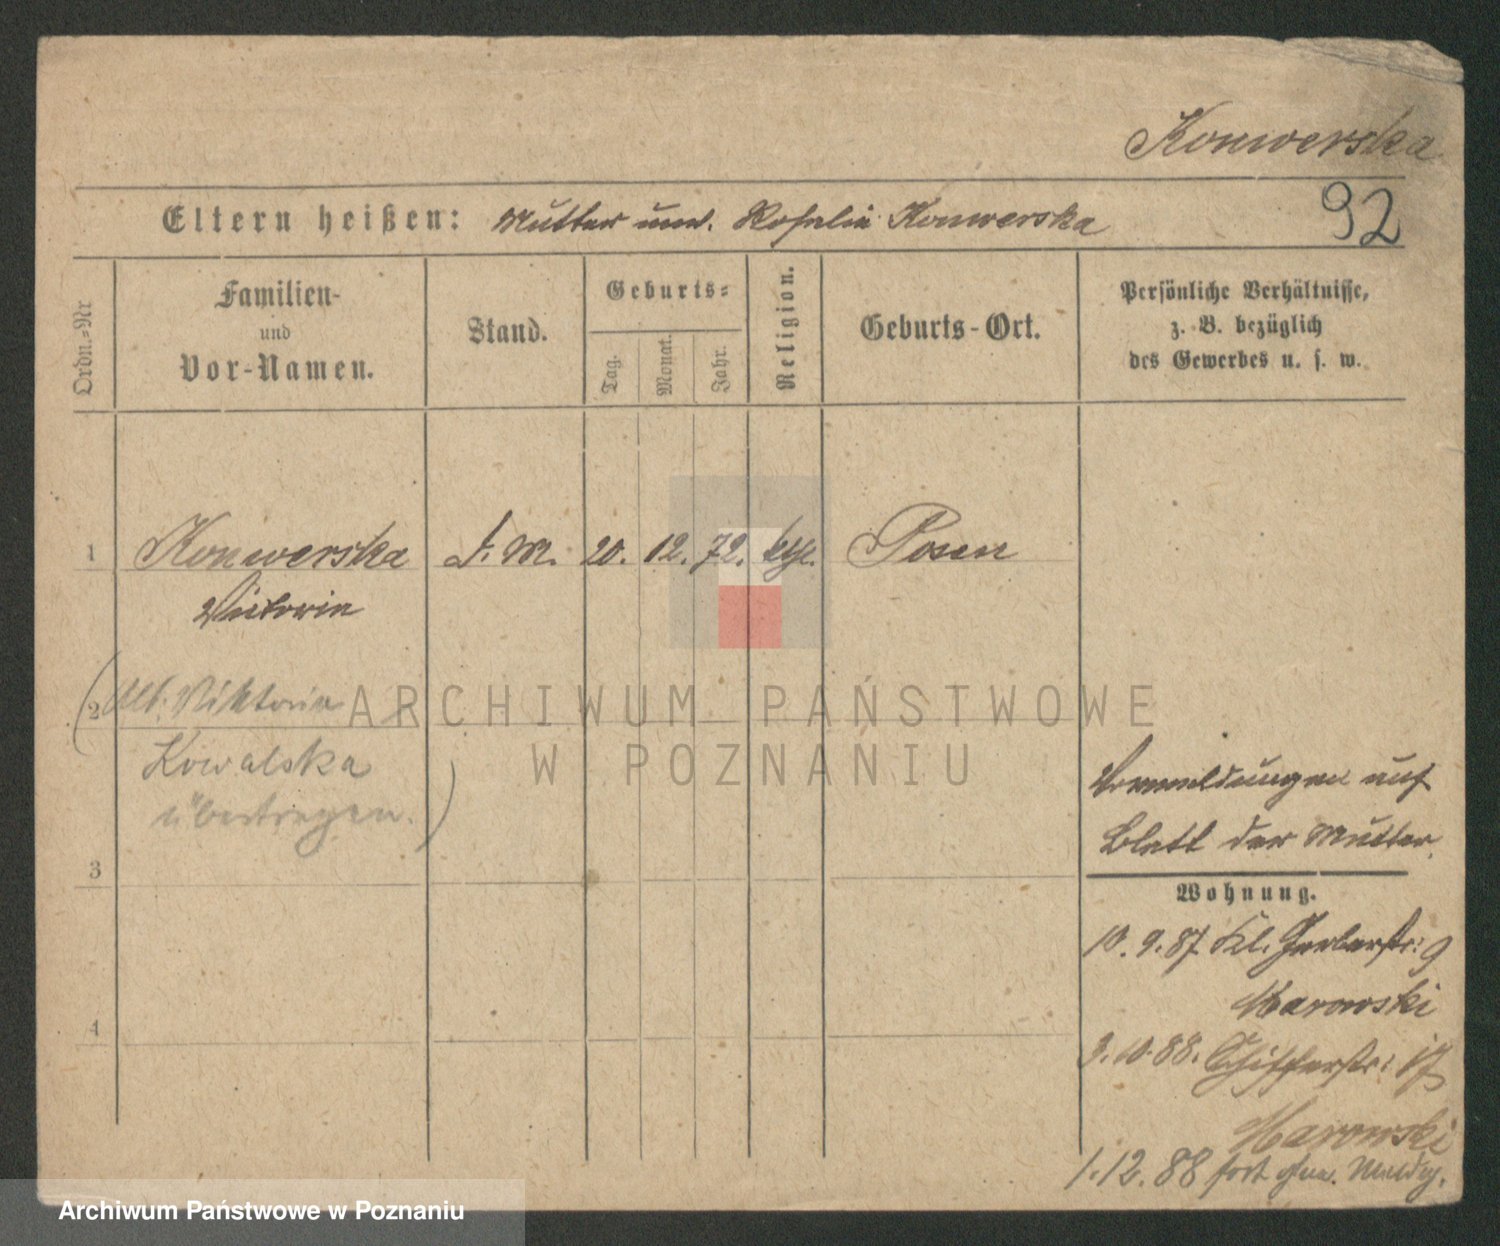 Konwerska
Eltern heißen: Mutter unv. Rosalie Konwerska
92
Ordn.-Nr
Familien-
und
Vor-Namen.
Stand.
Geburts-
Tag.
Monat.
Jahr.
Religion.
Geburts-Ort.
Persönliche Verhältnisse,
z. B. bezüglich
des Gewerbes u. s. w.
1 Konwerska D. M. 20. 12. 72. kth. Posen
Victoria
2 Viktoria
Kowalska
übertragen.)
3
4
Vermeldungen auf
Blatt der Mutter.
Wohnung.
10. 9. 87 Kl. Gerberstr: 9
Marowski
3. 10. 88. Schifferstr: 17
Marowski
1. 12. 88 fort ohne Meldg.
ARCHIWUM PAŃSTWOWE
W POZNANIU
Archiwum Państwowe w Poznaniu